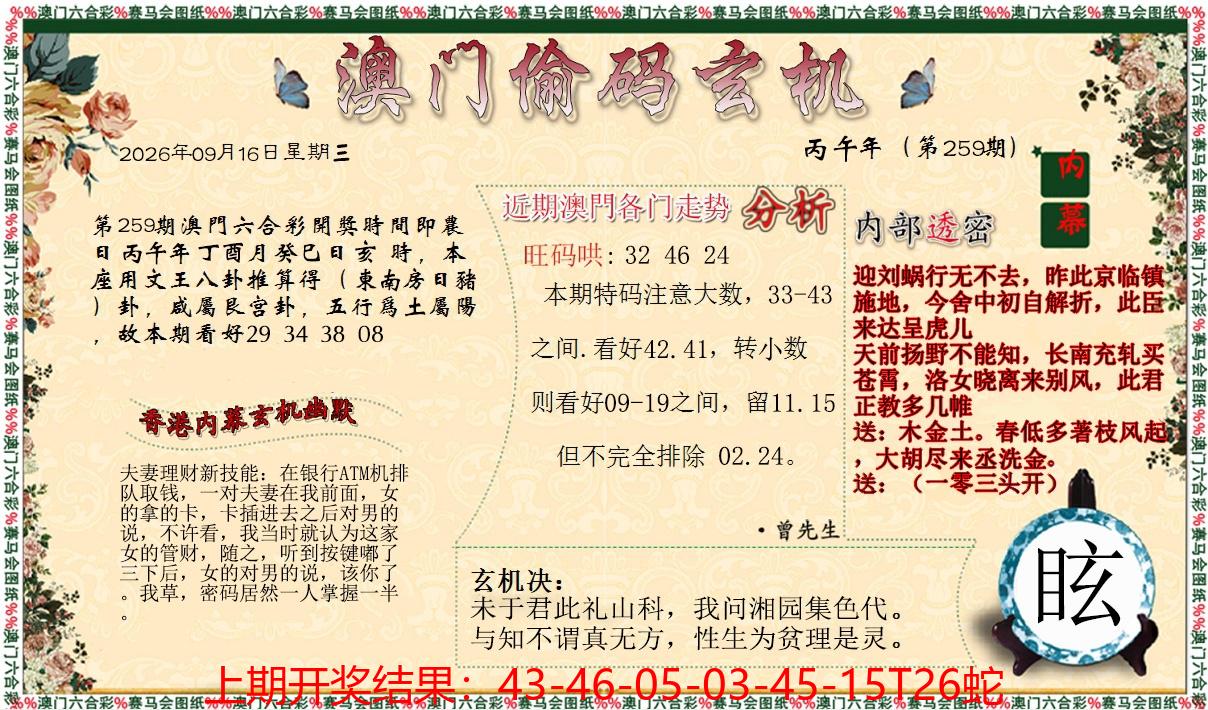 %%澳门六合彩%赛马会图纸%%澳门六合彩%赛马会图纸%%澳门六合彩%赛马会图纸%%澳门六合彩%赛马会图纸%%澳门六合彩%赛马会图纸%%澳门六合彩%赛马会图纸%%
澳门偷码玄机
2026年09月16日星期三
丙午年（第259期）
第259期澳門六合彩開獎時間即農
日丙午年丁酉月癸巳日亥 時，本
座用文王八卦推算得（東南房日豬
）卦，咸屬艮宫卦，五行爲土屬陽
，故本期看好29 34 38 08
香港内幕玄机幽默
夫妻理财新技能：在银行ATM机排
队取钱，一对夫妻在我前面，女
的拿的卡，卡插进去之后对男的
说，不许看，我当时就认为这家
女的管财，随之，听到按键嘟了
三下后，女的对男的说，该你了
。我草，密码居然一人掌握一半
。
近期澳門各门走势 分析
旺码哄: 32 46 24
本期特码注意大数，33-43
之间.看好42.41，转小数
则看好09-19之间，留11.15
但不完全排除 02.24。
·曾先生
内幕
内部透密
迎刘蜗行无不去，昨此京临镇
施地，今舍中初自解折，此臣
来达呈虎儿
天前扬野不能知，长南充轧买
苍霄，洛女晓离来别风，此君
正教多几帷
送：木金土。春低多著枝风起
，大胡尽来丞洗金。
送：（一零三头开）
玄机决：
未于君此礼山科，我问湘园集色代。
与知不谓真无方，性生为贫理是灵。
眩
上期开奖结果：43-46-05-03-45-15T26蛇